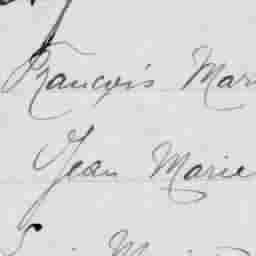 François Mar
Jean Marie